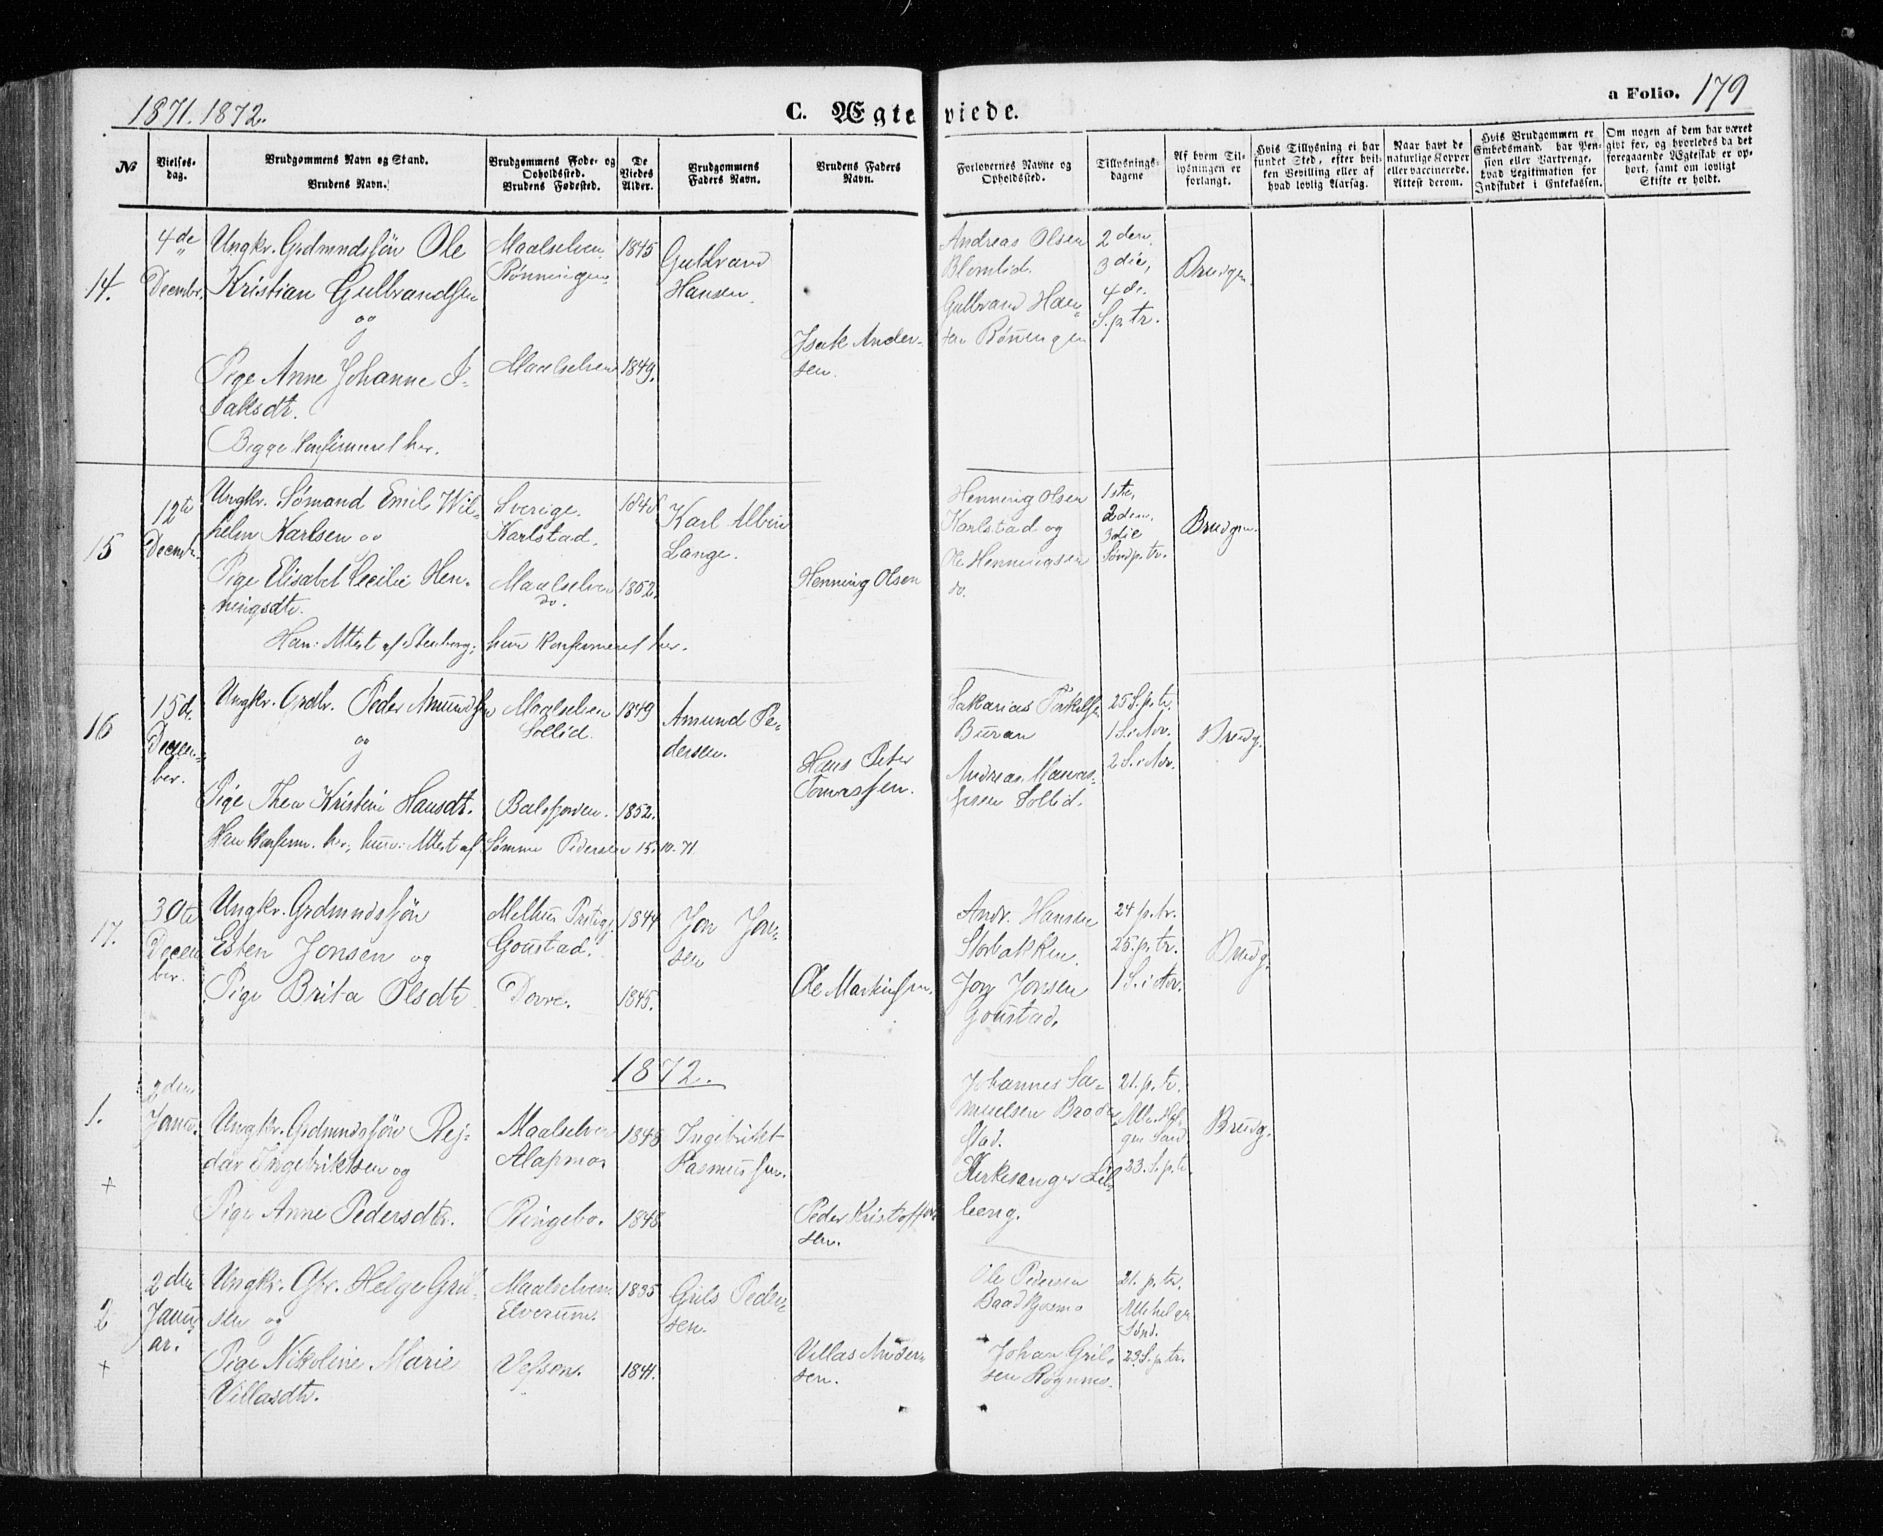 1871. 1872.
C. Ægteviede.
a Folio. 179
No
Vielses-
dag.
Brudgommens Navn og Stand.
Brudens Navn.
Brudgommens Føde- og
Opholdssted.
Brudens Fødested.
De
Viedes
Alder.
Brudgommens
Faders Navn.
Brudens Faders
Navn.
Forlovernes Navne og
Opholdssted.
Tillysnings-
dagene
Af hvem Til-
lysningen er
forlangt.
Hvis Tillysning ei har
fundet Sted, efter hvil-
ken Bevilling eller af
hvad lovlig Aarsag.
Naar havt de
naturlige Kopper
eller vaccinerede.
Attest derom.
Hvis Brudgommen er
Embedsmand, har Pen-
sion eller Vartpenge,
hvad Legitimation for
Indskudet i Enkekassen.
Om nogen af dem har været
gift før, og hvorledes da det
foregaaende Ægteskab er op-
hørt, samt om lovligt
Skifte er holdt.
14.
4de
Decembr.
Ungkr. Grdmndssøn Ole
Kristian Gulbrandsen
og
Pige Anne Johanne I-
saksdtr.
Begge konfirmeret her.
Maalselven
Rønningen.
Maalselven
1845
1849.
Gulbrand
Hansen.
Isak Ander-
sen.
Andreas Olsen
Blomlid.
Gulbrand Han-
sen Rønningen
2den,
3die,
4de
S. p. tr.
Brudgm.
15
12te
Decemb.
Ungkr. Sømand Emil Wil-
helm Karlsen og
Pige Elisabet Cecilie Hen-
ningsdtr.
Han: Attest af Stenberg; hun konfirmeret her.
Sverige.
Karlstad.
Maalselven
do.
1852.
Karl Albin
Lange.
Henning Olsen
Henning Olsen
Karlstad og
Ole Henningsen
do.
1ste,
2den,
3die
Søndp. tr.
Brudgm.
16
15de
Decem-
ber.
Ungkr. Grdbr. Peder Amundsen
og
Pige Thea Kristine Hansdtr.
Han konfirm. her, hun: Attest af Sømme Pedersen 15.10.71
Maalselven
Sollid.
Balsfjorden.
1849
1852.
Amund Pe-
dersen.
Hans Peter
Tomassen.
Sakarias Torkelsen
Buran
Andreas Manas-
sesen Sollid.
25 S. p. tr.
1 S. i Adv.
2 S. i Adv.
Brudg.
17.
30te
Decem
ber.
Ungkr. Grdmndssøn
Esten Jonsen og
Pige Brita Olsdtr
Melhus Prstegj.
Goustad.
Dovre.
1844
1845.
Jon Jon-
sen
Ole Markussen.
Andr. Hansen
Storbakken.
Jon Jonsen
Goustad.
24 p. tr.
25. p. tr.
1 S. i Adv.
Brudg.
1872.
1.
+
2den
Janu.
Ungkr. Grdmndssøn Rej-
dar Ingebriktsen og
Pige Anne Pedersdtr.
Maalselven
Alapmo
Ringebo.
1848
1848
Ingebrikt
Rasmussen.
Peder Kristoffer
sen.
Johannes Sa-
muelsen Brode
stad.
Kirkesanger Lil-
leeng.
21. p. tr.
Alle Hel-
gen Sønd
23. S. p. tr.
Brudg.
2
+
2den
Janu-
ar.
Ungkr. Gbr. Helge Gril-
sen og
Pige Nikoline Marie
Villasdtr.
Maalselven
Elverum.
Vefsen.
1835
1841.
Grils Peder-
sen.
Villas Ander-
sen.
Ole Pedersen
Johan Gril-
sen Rognmo.
21. p. tr.
Allehelgn
Sønd.
23 S. p. tr.